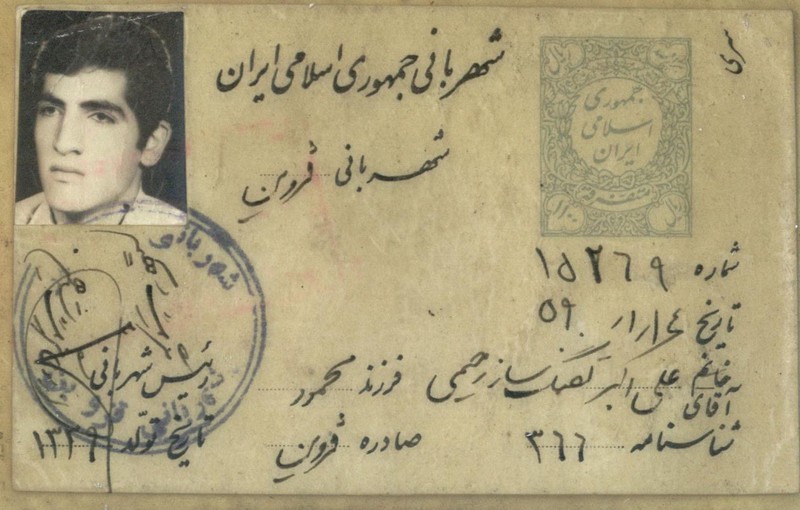 شهربانی جمهوری اسلامی ایران
سری
جمهوری
اسلامی
ایران
متفرقه
شهربانی قزوین
شماره ۱۵۲۶۹
تاریخ ۱۴/۱/۵۹
به خانم / آقای علی اکبر تفنگ ساز رحیمی فرزند محمود
شناسنامه ۳۶۶ صادره قزوین تاریخ تولد ۱۳۳۶
رئیس شهربانی